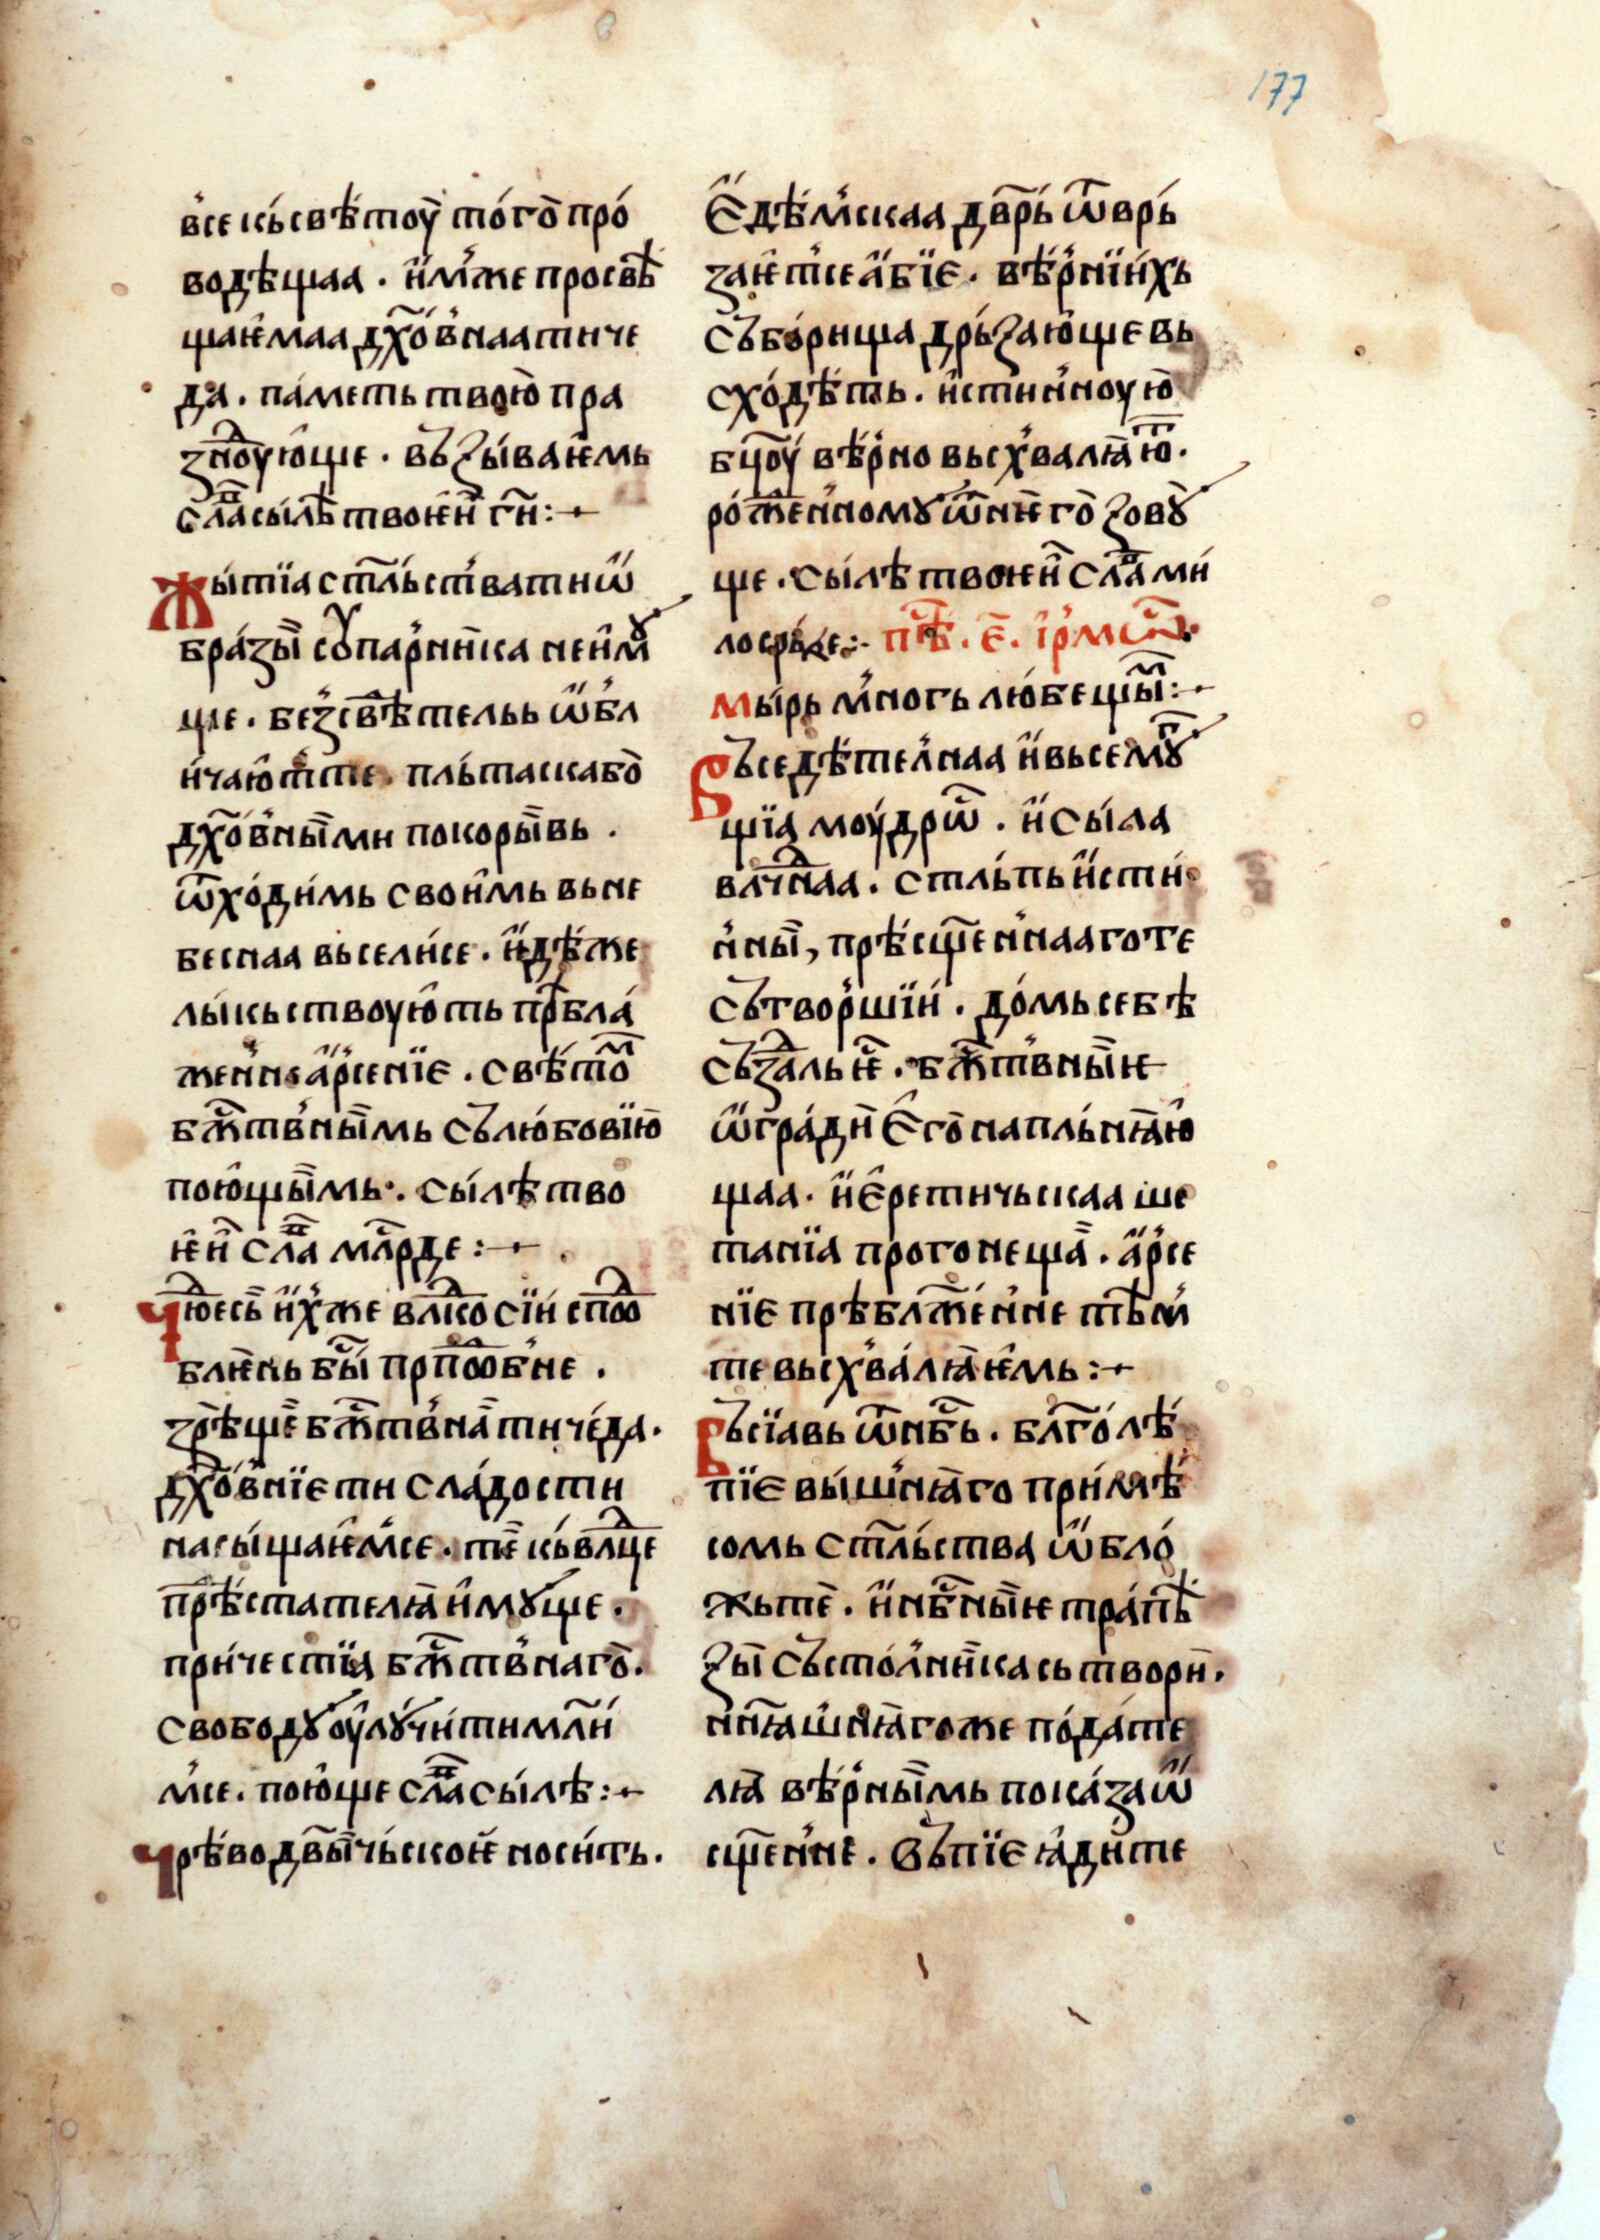 177
в̾се кь́ свѣ́тоу̀ то́го̀ про́
водѣщаа . и҆́м̾же просвѣ
щаѥ҆маа дх҃ов̾наа ти че
да . па́меть твою̀ пра
зⷣноую҆ще . въꙁы́ваѥ҆мь
слаⷡ҇ сы́лѣ твоѥ҆и҆ ги҃ :~
Жы́тїа ст҃ль́ст̾ва ти ѡ҆́
бра́зы̏ соу́пар̾ни̏ка неи҆мꙋ
ще . беꙁ̾ свѣ̏тельь ѡ҆́б̾л
и́чаю҆т̾ те . пль́таскабо̀
дх҃ов̾ны̏ми покоры̏вь .
ѿхо́ди́мь свои҆мь вь не
беснаа вьсели́се . и҆́дѣ́же
лы́кьствоую҆ть прⷣѣбла́
жен̾не а҆р̾сенїе . свѣ́тоⷨ
бжⷭ҇тв̾ны̏мь съ лю́бовїю̀
пою҆щы̏мь . сы́лѣ тво
ѥ҆и҆ слаⷡ҇ млⷭ҇рде :~
Чтⷣюесь̏ и҆́х̾же влⷣко сїи́ споⷣо
блѥ̏нь бы́ⷭ҇ прпⷣооб̾не .
зрѣ̏ще̏ бжⷭ҇тв̾на̏ ти че́да .
дх҃ов̾нїе ти сла́дости
насы́щаѥ҆м̾се . те̏ кь́ влⷣце
прѣ̏стателꙗ̏ и҆мꙋ́ще .
при́честїа бжⷭ҇тв̾наго̀ .
свобо́дꙋ оу҆лꙋ́чи́ти мл҃и́
м̾се . пою҆ще слаⷡ҇ сы́лѣ :~
Чрѣ́во дв҃ы̏чь́скоѥ̏ носи́ть .
Е҆́дѣ́м̾скаа дв҃рь́ ѿврь́
заѥ҆т̾се а҆́бїе . вѣ́р̾нїи́хь
съ́бо́рища дрь́ꙁаю҆ще вь
схо́дѣ́ть . и҆стин̾ноую̀
бц҃оу́ вѣ́р̾но вьсх̾валꙗ̏юⷮ .
ро́жⷣен̾номꙋ ѿ нѥ̏го̀ ꙁовꙋ̀
ще . сы́лѣ твоѥ҆и҆ слаⷡ҇ ми́
лосрь́де :~ пѣⷭ҇ . е҃ . і҆р̾мѡⷭ҇ .
мы́рь м̾ногь лю́бещы̏ⷨ :~
Въседѣ́тел̾наа и҆́вьсемꙋⷣ
щїа моу́дрѡⷭ҇ . и҆́ сы́ла
влⷣчнаа . стль́пь и҆́сти́
н̾ны̏ , прѣ́сщ҃ен̾нааготе
сътвор̾шїи́ . до́мь себѣ
съзⷣальѥⷭ҇ . бжⷭ҇тв̾ны̏ѥ
ѡ҆́гра́ди̏ е҆го̀ наплы́нꙗ̏ю҆
щаа . и҆́ е҆ретичьскаа ше
танїа прогонеща̏ . а҆р̾се
нїе прѣблж҃е́н̾не тѣм̾
те вьсх̾ва́лꙗ̏ѥ҆мь :~
Въсїавь ѿ нбⷭ҇ь . бл҃го́лѣ́
пїе вы́ш̾нꙗ̏го при́мѣ́
сомь ст҃ль́ства ѡ҆́бло́
жьте̏ . и҆́ нбⷭ҇ны̏ѥ тра́пѣ
ꙁы̏ състо́л̾ни̏ка сьтвори̏ .
нн҃ꙗш̾нꙗ̏гоже по́да́те
лꙗ̏ вѣ́р̾ны̏мь пока́за ѡ҆́
сщ҃ен̾не . въпїе ꙗ҆ди̏те